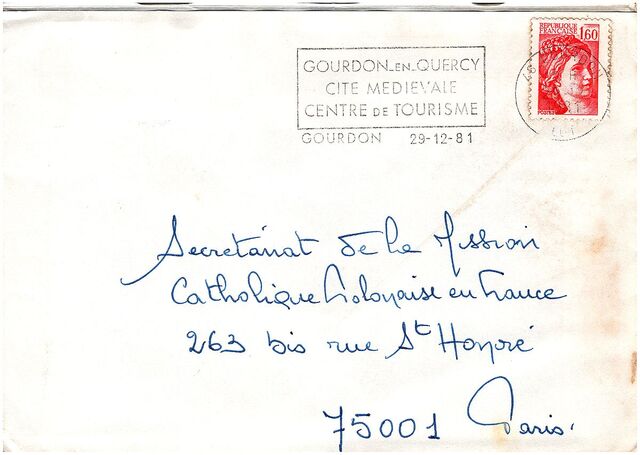 GOURDON-EN-QUERCY
CITE MEDIEVALE
CENTRE DE TOURISME
GOURDON 29-12-81
REPUBLIQUE
FRANÇAISE
1,60
POSTES
Secretariat de la Mission
Catholique Polonaise en France
263 bis rue St Honoré
75001 Paris.